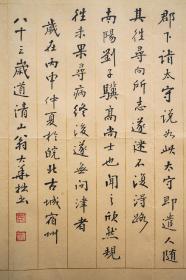 郡下诣太守说如此太守即遣人随
其往寻向所志遂迷不復得路
南陽劉子驥高尚士也闻之欣然規
往未果尋病终後遂无问津者
歲在丙申仲夏於皖北古城宿州
八十三歲道清山翁大華拙書